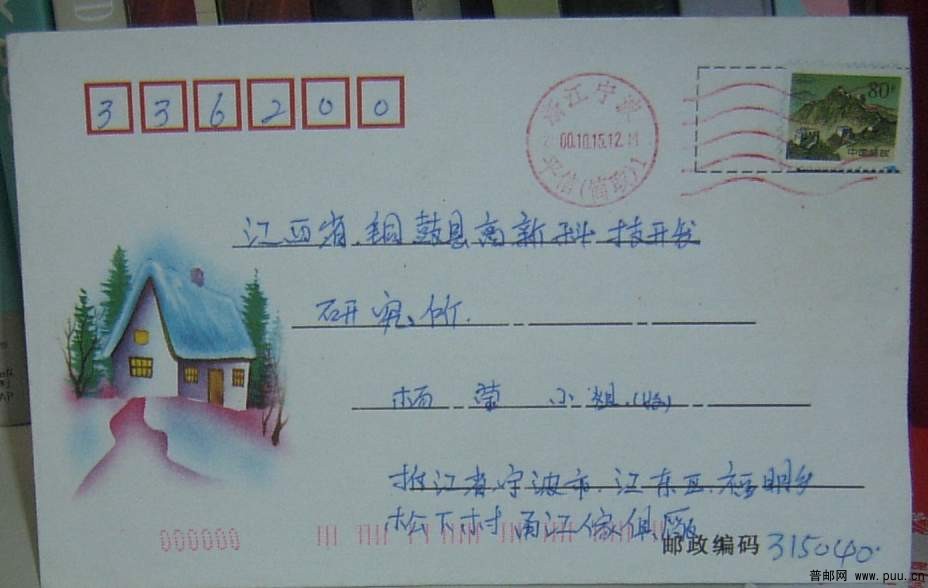 336200
浙江宁波
00.10.15.12
平信(简取)1
80
中国邮政
江西省铜鼓县高新科技开发
研究所
杨 莹 小姐(收)
浙江省宁波市江东区福明乡
松下村甬江傢俱厰
000000
邮政编码 315040
普邮网 www.puu.cn